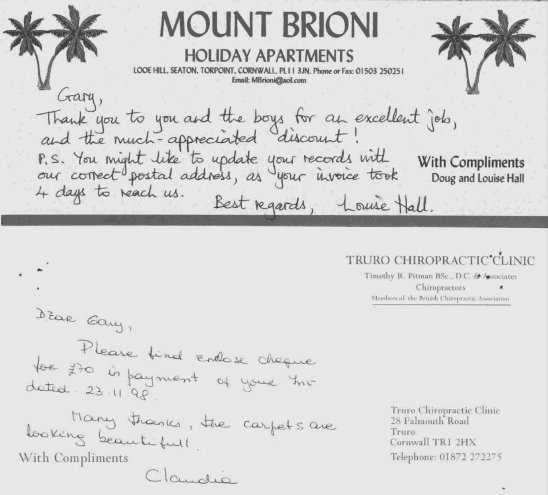 MOUNT BRIONI
HOLIDAY APARTMENTS
LOOE HILL, SEATON, TORPOINT, CORNWALL, PL11 3JN. Phone or Fax: 01503 250251
Email: MBrioni@aol.com
Gary,
Thank you to you and the boys for an excellent job,
and the much-appreciated discount!
P.S. You might like to update your records with
our correct postal address, as your invoice took
4 days to reach us.
With Compliments
Doug and Louise Hall
Best regards, Louise Hall.
TRURO CHIROPRACTIC CLINIC
Timothy R. Pitman BSc., D.C. & Associates
Chiropractors
Members of the British Chiropractic Association
Dear Gary,
Please find enclose cheque
for £70 in payment of your Inv
dated. 23.11.98.
Many thanks, the carpets are
looking beautifull.
Claudia
With Compliments
Truro Chiropractic Clinic
28 Falmouth Road
Truro
Cornwall TR1 2HX
Telephone: 01872 272275